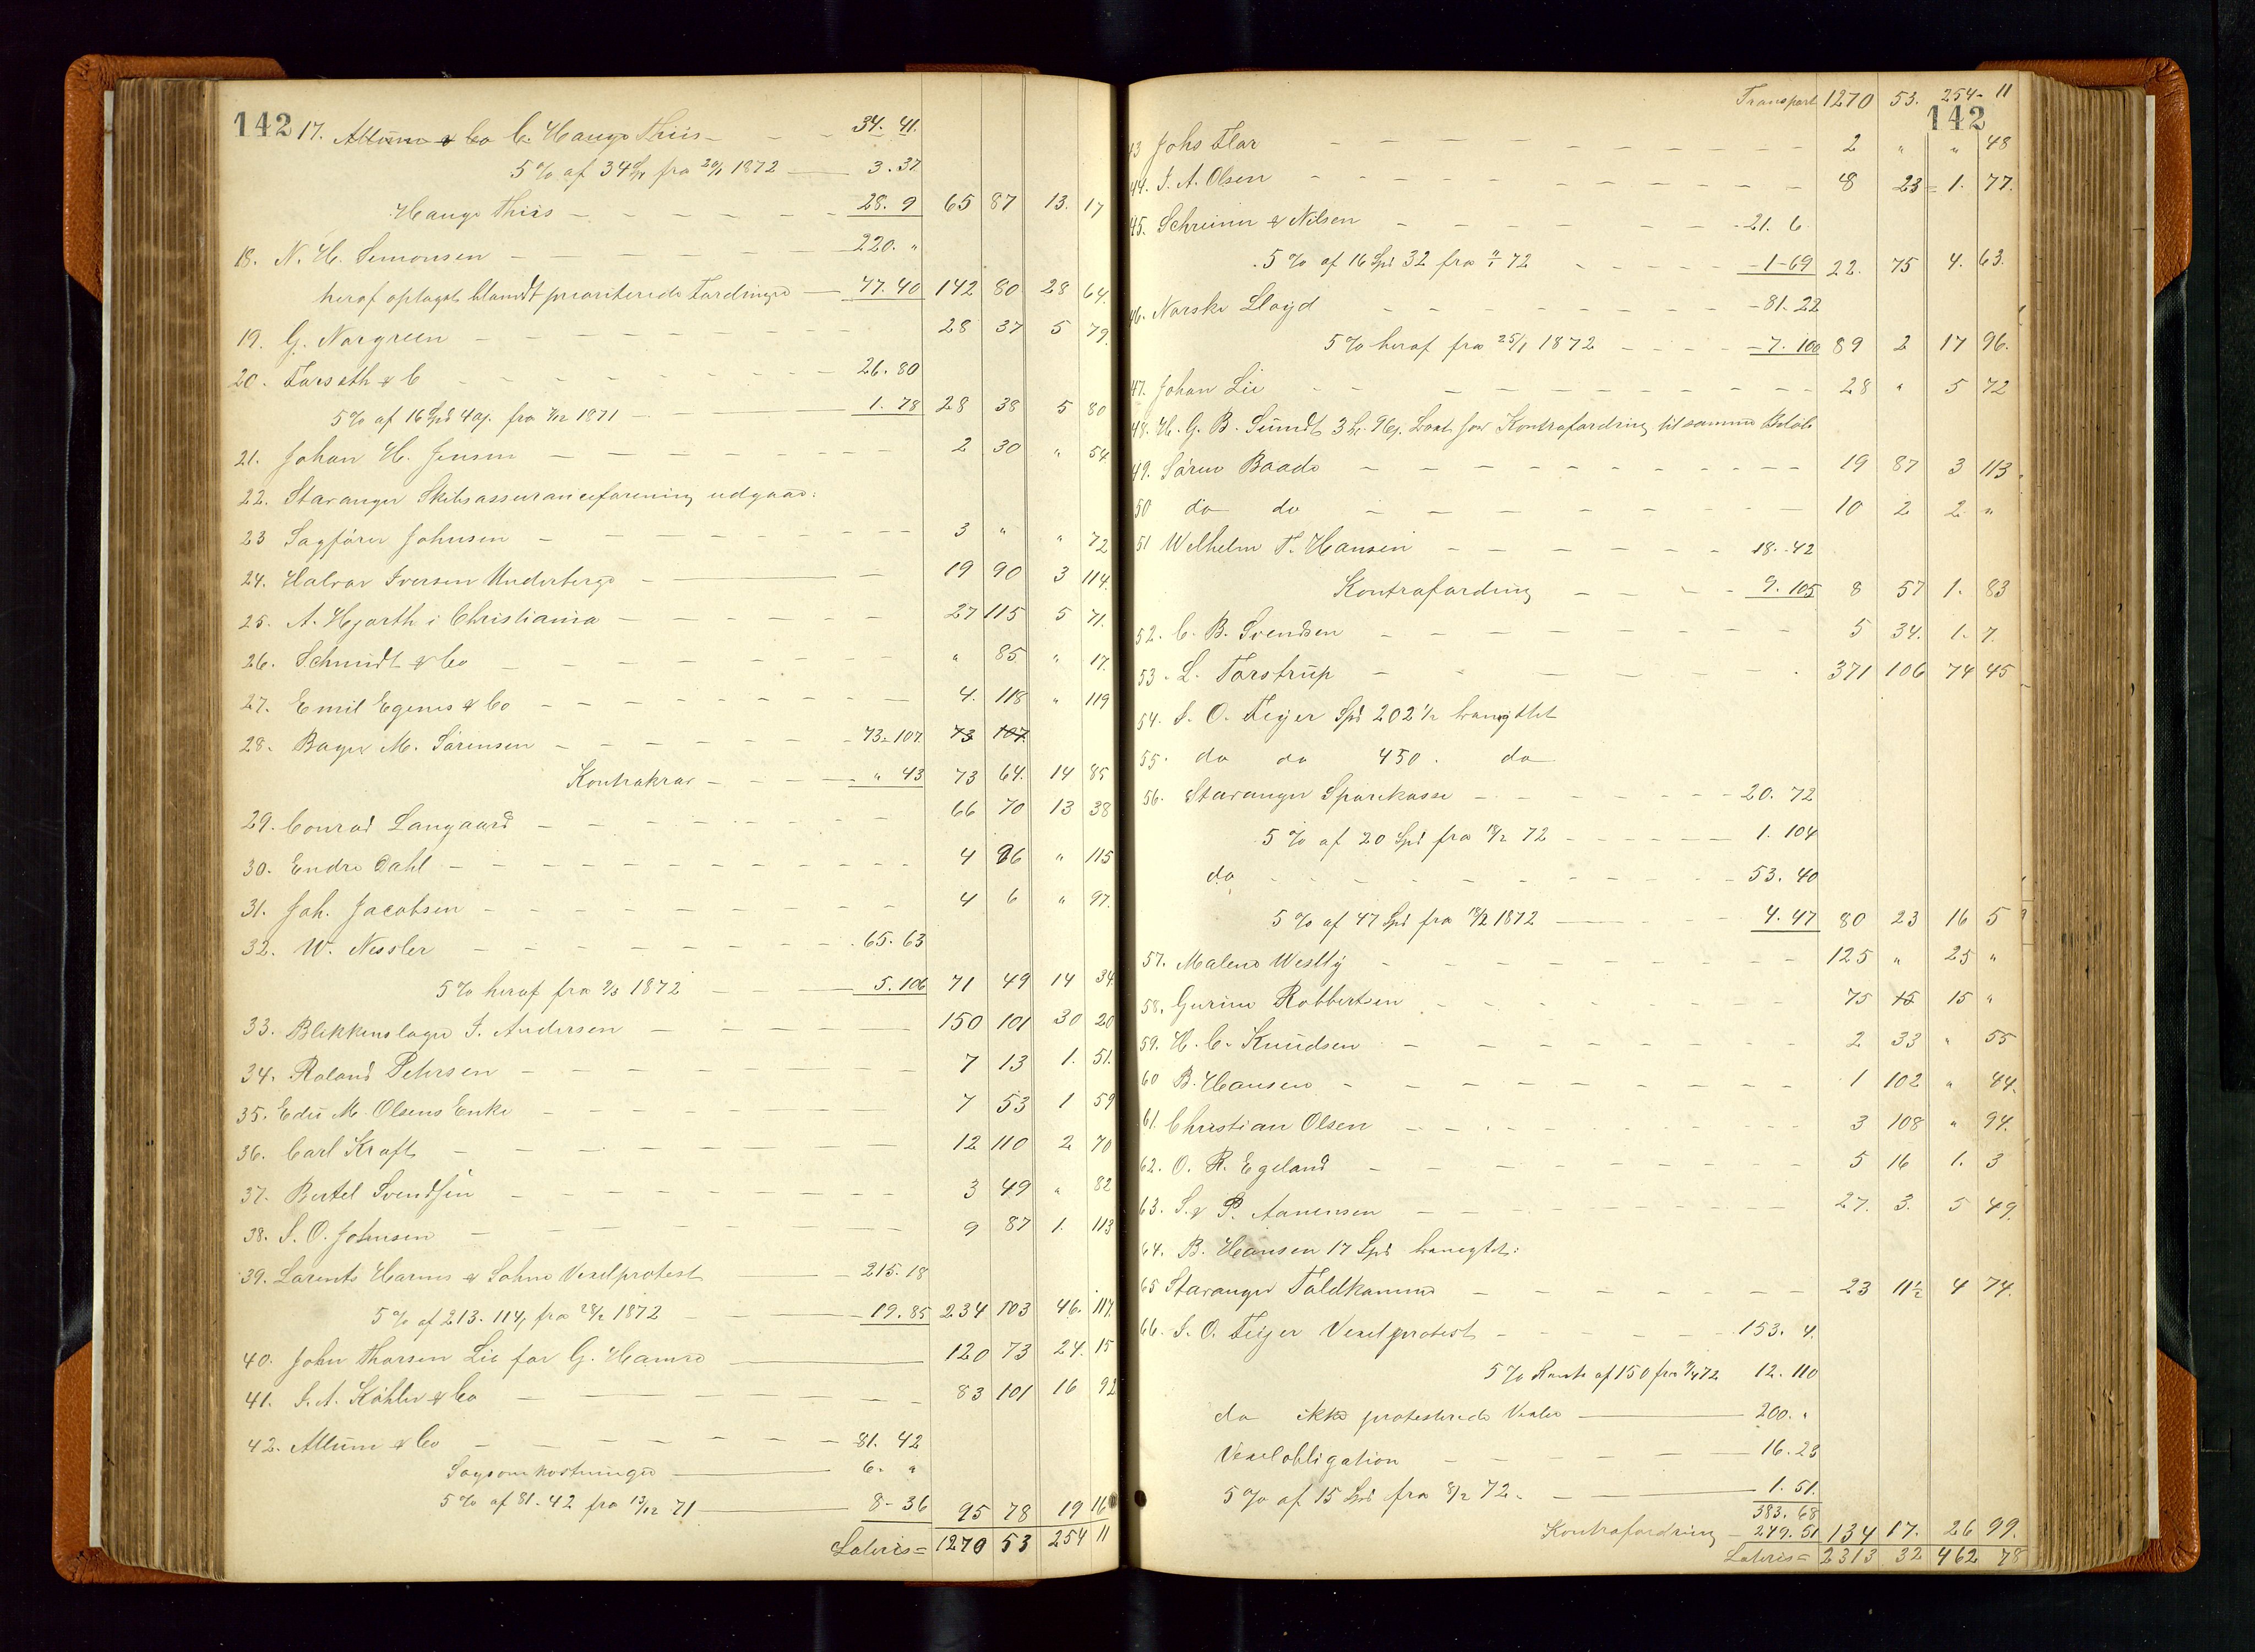 142 17. Altum & Co C. Hauge Thiis – – – 34. 41.
5 % af 34 fra 20/1 1872 — 3. 37
Hauge Thiis – – – – – – 28. 9 65 87 13. 17
18. N. H. Simonsen – – – – – – 220. "
heraf optaget blandt prioriterede Fordringer — 77. 40 142 80 28 64.
19. G. Norgreen – – – – – – – 28 37 5 79.
20. Forseth & C – – – – – – – 26. 80
5 % af 16 Spd 40 fra 1871 – – – 1. 78 28 38 5 80
21. Johan H. Jensen – – – – – – – 2 30 " 54
22. Stavanger Skibsassuranceforening udgaar:
23 Sagfører Johnsen – – – – – – – 3 " " 72
24. Halvor Iversen Underberge – – – 19 90 3 114.
25. A. Hjorth i Christiania – – – – – – 27 115 5 71.
26. Schmidt & Co – – – – – – – – " 85 " 17.
27. Emil Egenes & Co – – – – – – – 4. 118 " 119
28. Bager M. Sörensen – – – – – – 73. 107. 73 107.
Kontrakrav – – – – " 43 73 64. 14 85
29. Conrad Langaard – – – – – – – 66 70 13 38
30. Endre Dahl – – – – – – – – – 4 96 " 115
31. Joh. Jacobsen – – – – – – – – 4 6 " 97.
32. W. Nessler – – – – – – – 65. 63
5 % heraf fra 1872 – – – 5. 106 71 49 14 34
33. Blikkenslager I. Andersen – – – – 150 101 30 20
34. Roland Petersen – – – – – – – 7 13 1. 51.
35. Edv M. Olsens Enke – – – – – – 7 53 1 59
36. Carl Kraft – – – – – – – – 12 110 2 70
37. Bertel Svendsen – – – – – – – 3 49 " 82
38. S. O. Johnsen – – – – – – – – 9 87 1. 113
39. Lorents Harms & Sohne Vexelprotest — 215. 18
5 % af 213. 114 fra 28/2 1872 — 19. 85 234 103 46. 117.
40. John Thorsen Lie for G. Hamre — 120 73 24. 15
41. S. A. Köhler & Co – – – – – – – 83 101 16 92
42. Altum & Co – – – – – – – 81. 42
Sagsomkostninger — 6. "
5 % af 81–42 fra 13/12 71 — 8–36 95 78 19 16
Lateris = 1270 53 254 11
Transport 1270 53. 254– 11
142
43 Johs Flor – – – – – – – – – 2 " " 48
44. I. A. Olsen – – – – – – – – – 8 23 = 1. 77.
45. Schreiner & Nilsen – – – – – – 21. 6
5 % af 16 Spd 32 fra 72 – – – 1–69 22. 75 4. 63.
46. Norske Lloyd – – – – – – – 81. 22
5 % heraf fra 25/1 1872 – – – 7. 100 89 2 17 96.
47. Johan Lie – – – – – – – – – 28 " 5 72
48. H. G. B. Sundt 3 Kontrafordring til samme Beløb
49. Sören Baade – – – – – – – – – 19 87 3 113
50 do do – – – – – – – – 10 2 2 "
51 Wilhelm T. Hansen – – – – – – 18. 42
Kontrafordring – – – – 9. 105 8 57 1. 83
52. C. B. Svendsen – – – – – – – 5 34. 1. 7.
53. L. Torstrup – – – – – – – 371 106 74 45
54. S. O. Feyer Spd 202 1/2 benegtet
55. do do 450. do
56. Stavanger Sparekasse – – – – – – 20. 72
5 % af 20 Spd fra 18/2 72 – – – – 1. 104
do – – – – – – – – – 53. 40
5 % af 47 Spd fra 18/2 1872 — 4. 47 80 23 16 5
57. Malene Westby – – – – – – – – 125 " 25 "
58. Gurine Robbertsen – – – – – – – 75 15 15 "
59. H. C. Knudsen – – – – – – – – 2 33 " 55
60 B. Hansen – – – – – – – – – 1 102 " 44.
61. Christian Olsen – – – – – – – – 3 108 " 94.
62. O. R. Egeland – – – – – – – – – 5 16 1. 3
63. S. & P. Aanensen – – – – – – – – 27. 3. 5 49.
64. B. Hansen 17 Spd benegtet:
65 Stavanger Toldkammer – – – – – – – 23 11 1/2 4 74.
66. S. O. Feijer Vexelprotest – – – – – – 153. 4.
5 % Rente af 150 fra 72 12. 110
do ikke protesterede Vexler — 200. "
Vexelobligation – – – – – – 16. 23
5 % af 15 Spd fra 8/2 72. — 1. 51.
383. 68
Kontrafordring – 249. 51 134 17. 26 99.
Lateris = 2313 32 462 78